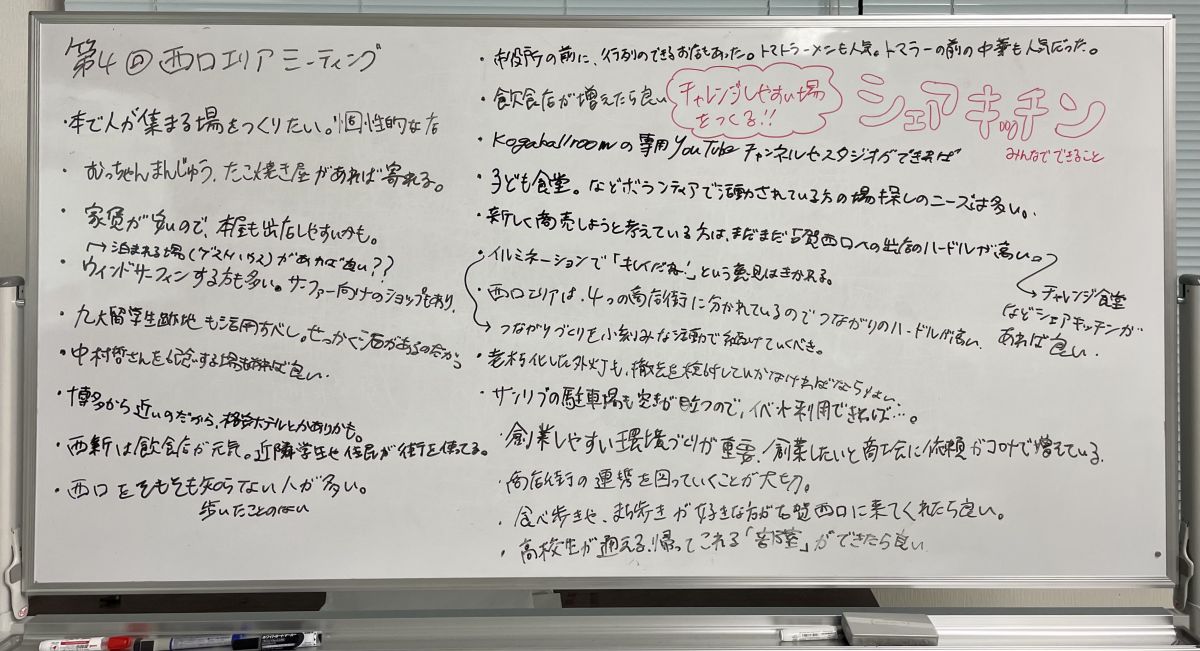 第4回西口エリアミーティング
・本で人が集まる場をつくりたい。個性的な店
・むっちゃんまんじゅう、たこ焼き屋があれば寄れる。
・家賃が安いので、本屋も出店しやすいかも。
→泊まれる場(ゲストハウス)があれば良い??
・ウィンドサーフィンする方も多い。サーファー向けのショップもあり、
・九大留学生跡地も活用すべし。せっかく酒があるのだから
・中村哲さんを記念する場もあれば良い.
・博多から近いのだから、格安ホテルとかありかも。
・西新は飲食店が元気。近隣学生や住民が街を使ってる。
・西口をそもそも知らない人が多い。
歩いたことのない
・市役所の前に、行列のできるお店もあった。トマトラーメンも人気。トマラーの前の中華も人気だった。
・飲食店が増えたら良い
チャレンジしやすい場
をつくる!!
シェアキッチン
みんなでできること
・Kogahallroomの専用YouTubeチャンネルやスタジオができれば
・子ども食堂。などボランティアで活動されている方の場探しのニーズは多い。
・新しく商売しようと考えている方は、まだまだ古賀西口への出店のハードルが高い。
→チャレンジ食堂
などシェアキッチンが
あれば良い.
・イルミネーションで「キレイだね!」という意見はきかれる。
・西口エリアは、4つの商店街に分かれているのでつながりのハードルが高い
→つながりづくりを小刻みな活動で続けていくべき。
・老朽化した外灯も、撤去を検討していかなければならない.
・サンリブの駐車場も空きが目立つので、イベント利用できれば…。
・創業しやすい環境づくりが重要!創業したいと商工会に依頼がコロナで増えている.
・商店街の連携を図っていくことが大切。
・食べ歩きや、まち歩きが好きな方が古賀西口に来てくれたら良い。
・高校生が通える、帰ってこれる「部室」ができたら良い